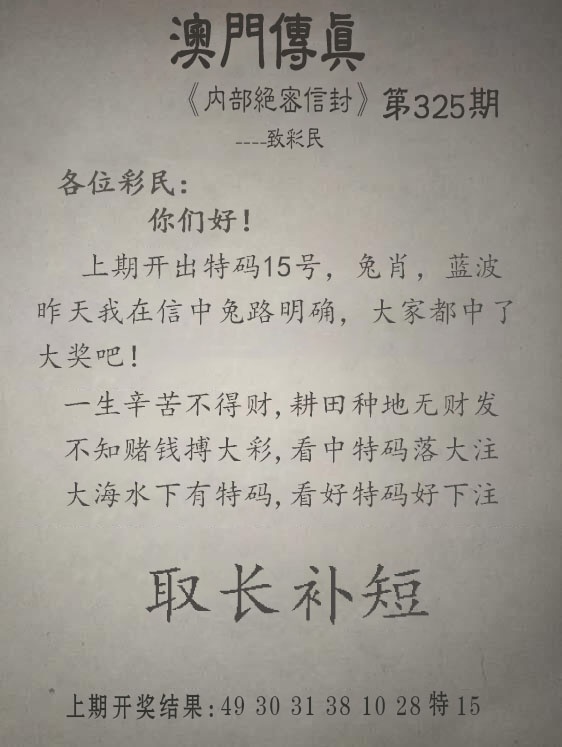 澳門傳真
《内部絕密信封》第325期
----致彩民
各位彩民：
你们好！
上期开出特码15号，兔肖，蓝波
昨天我在信中兔路明确，大家都中了
大奖吧！
一生辛苦不得财,耕田种地无财发
不知赌钱搏大彩,看中特码落大注
大海水下有特码,看好特码好下注
取长补短
上期开奖结果:49 30 31 38 10 28 特 15